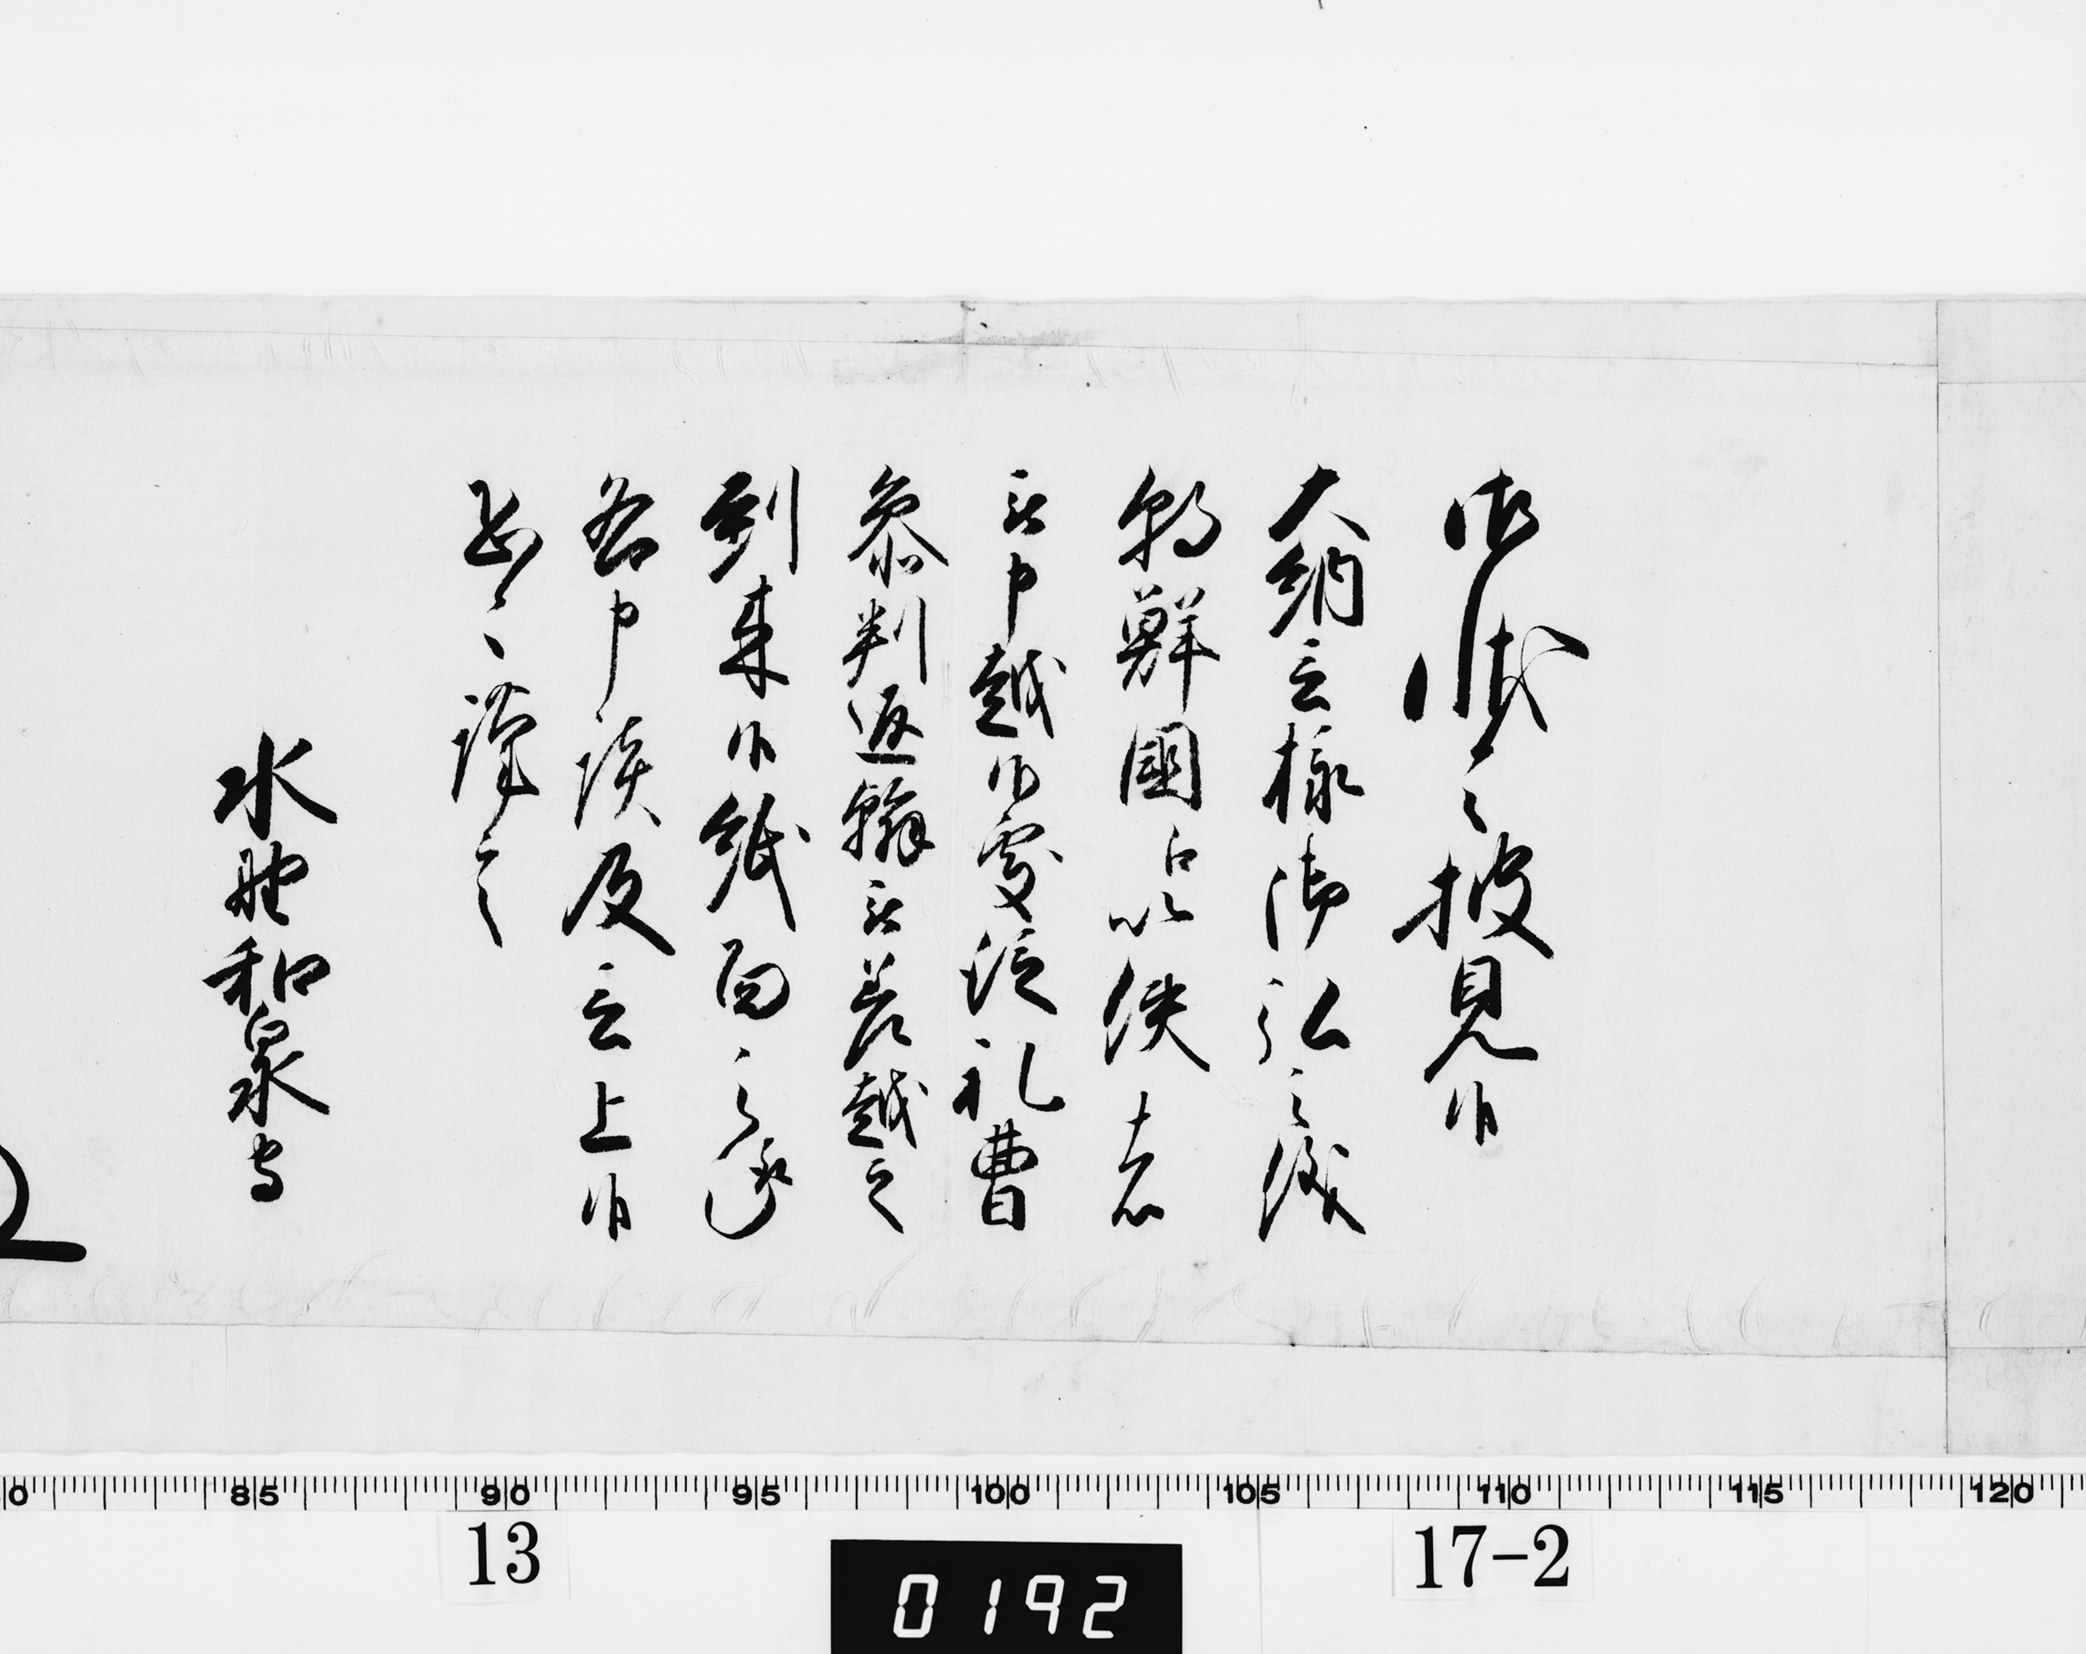 御状令披見候
大納言様御弘之儀
朝鮮國以使者
被申越候處従礼曹
参判返翰被差越之
到来候紙面之趣
各申談及言上候
恐々謹言
水野和泉守
80 85 90 95 100 105 110 115 120
13
17-2
0192